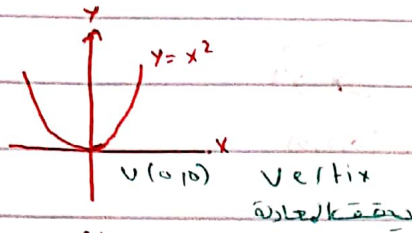 y
y = x²
x
V(0,0) Vertix
يحقق المعادلة